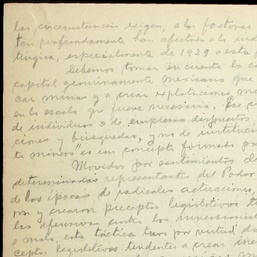 las circunstancias exigen, a los factores
tan profundamente han afectado a la ind
especialmente de 1929 a esta
Debemos tomar en cuenta la
capital genuinamente mexicano que
car minas y a crear explotaciones
en la escala que fuere necesaria.
de individuos o de empresas dispuestos
ciones y búsquedas, y no de
minero" es un concepto formado
Movidos por sentimientos
determinados representantes del Poder
de las épocas de radicales actuaciones,
on y crearon preceptos legislativos
las
o mas, esta táctica tuvo por virtud
ceptos legislativos tendentes a crear